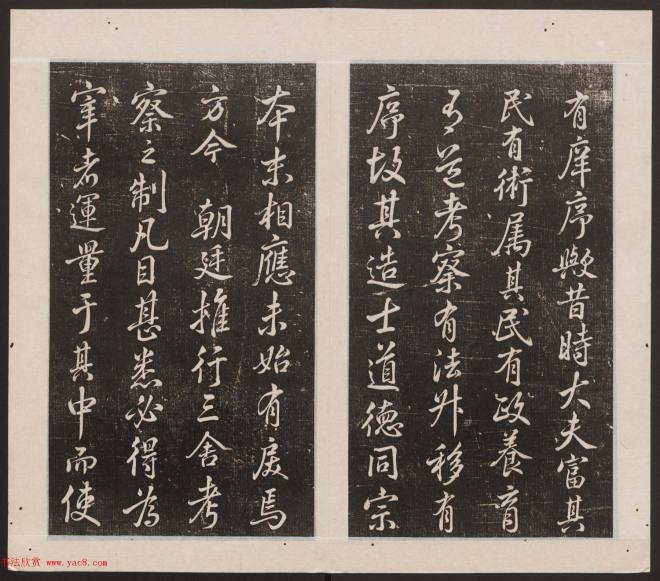 有庠序歟昔時大夫富其
民有術属其民有政養育
有道考察有法升移有
序故其造士道德同宗
本末相應未始有戾焉
方今 朝廷推行三舍考
察之制凡目甚悉必得為
宰者運量于其中而使
书法欣赏 www.yac8.com